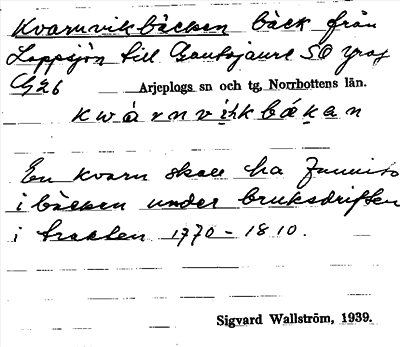 Kvarnvikbäcken bäck från
Loppsjön till Gautojaure SO
G26 Arjeplogs sn och tg, Norrbottens län.
kwárnvikbǽkan
En kvarn skall ha funnits
i bäcken under bruksdriften
i trakten 1770-1810.
Sigvard Wallström, 1939.